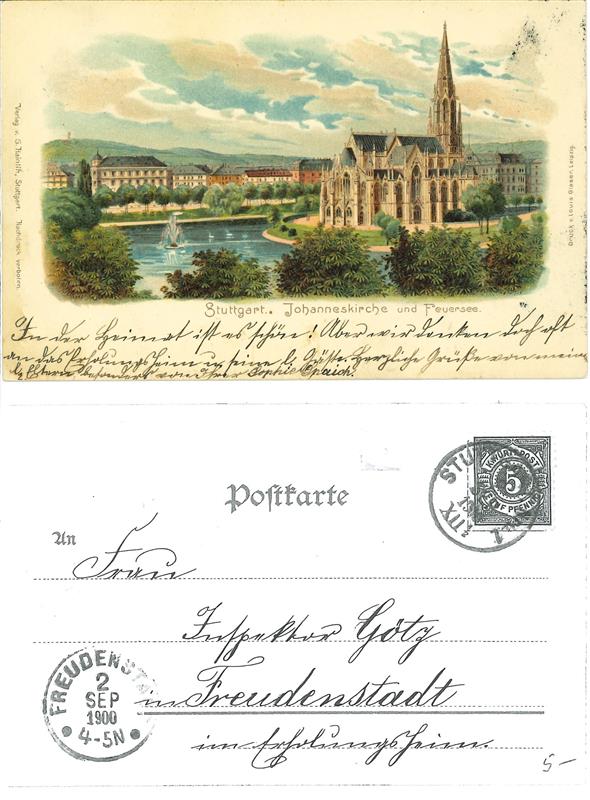 Verlag v. G. Hainlih, Stuttgart. Nachdruck verboten.
Druck v. Louis Glaser, Leipzig.
Stuttgart. Johanneskirche und Feuersee.
In der Heimat ist es schön! Aber wir denken doch oft
an das Erholungsheim u. seine l. Gäste. Herzliche Grüße von mein
l. Eltern besonders von Ihrer Sophie Spaich.
5
FÜNF PFENNIG
STU
XII
Postkarte
An
Frau
Inspektor Götz
FREUDENST
2
SEP
1900
4-5N
in Freudenstadt
im Erholungsheim.
5-